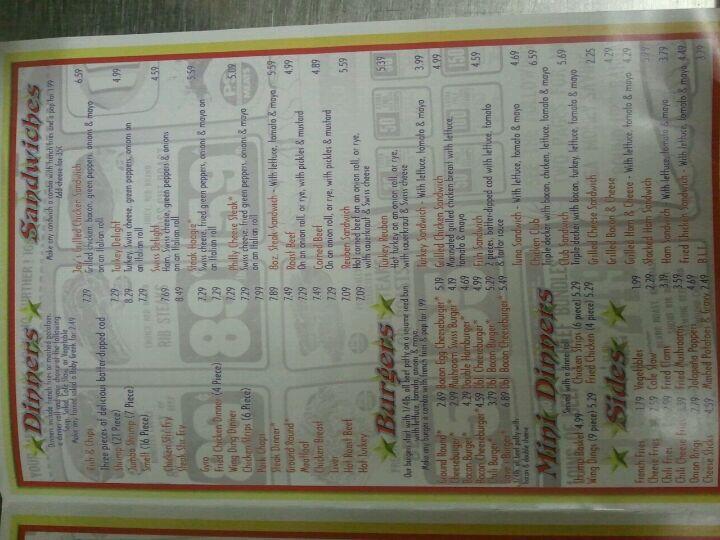 Dinners
Dinners include french fries or mashed potatoes,
a dinner roll and your choice of the following:
Soup, Salad, Cole Slaw, or Vegetable
Make any tossed salad a Baby Greek for 2.49
Fish & Chips 7.29
three pieces of delicious batter-dipped cod
Shrimp (21 Piece) 7.29
Jumbo Shrimp (7 Piece) 8.29
Smelt (16 Piece) 7.29
Chicken Stir Fry 7.69
Steak Stir Fry 8.49
Gyro 7.29
Fried Chicken Dinner (4 Piece) 7.29
Wing Ding Dinner 7.29
Chicken Strips (6 Piece) 7.29
Pork Chops 7.99
Steak Dinner* 7.89
Ground Round* 7.49
Meatloaf 7.29
Chicken Breast 7.29
Liver 7.29
Hot Roast Beef 7.09
Hot Turkey 7.09
Sandwiches
Make any sandwich a combo with french fries and a pop for 1.99
Add cheese for 35¢
Jay's Grilled Chicken Sandwich 6.59
Grilled chicken, bacon, green peppers, onions & mayo
on an Italian roll
Turkey Delight 4.99
Turkey, Swiss cheese, green peppers, onions & mayo
on an Italian roll
Swiss Ham 4.59
Ham, Swiss cheese, green peppers & onions
on an Italian roll
Steak Hoagie* 5.59
Swiss cheese, fried green peppers, onions & mayo on
an Italian roll
Philly Cheese Steak* 5.09
Swiss cheese, fried green peppers, onions & mayo
on an Italian roll
8oz. Steak Sandwich - With lettuce, tomato & mayo 5.59
Roast Beef 4.99
On an onion roll, or rye, with pickles & mustard
Corned Beef 4.89
On an onion roll, or rye, with pickles & mustard
Reuben Sandwich 5.59
Hot corned beef on an onion roll, or rye,
with sauerkraut & Swiss cheese
Turkey Reuben 5.39
Hot turkey on an onion roll, or rye,
with sauerkraut & Swiss cheese
Turkey Sandwich - With lettuce, tomato & mayo 3.99
Grilled Chicken Sandwich 4.99
Marinated grilled chicken breast with lettuce,
tomato & mayo
Fish Sandwich 4.59
2 pieces batter dipped cod with lettuce, tomato
& tartar sauce
Tuna Sandwich - With lettuce, tomato & mayo 4.69
Chicken Club 6.59
Triple decker with bacon, chicken, lettuce, tomato & mayo
Club Sandwich 5.69
Triple decker with bacon, turkey, lettuce, tomato & mayo
Grilled Cheese Sandwich 2.25
Grilled Bacon & Cheese 4.29
Grilled Ham & Cheese - With lettuce, tomato & mayo 4.29
Stacked Ham Sandwich
Ham Sandwich - With lettuce, tomato & mayo 3.79
Fried Chicken Sandwich - With lettuce, tomato & mayo 4.49
B.L.T. 3.79
Burgers
Our burgers start with 1/4lb. all beef patty on a sesame seed bun
with lettuce, tomato, onion & mayo.
Make any burger a combo with french fries & pop for 1.99
Ground Round* 2.69
Cheeseburger* 2.99
Bacon Burger* 4.29
Bacon Cheeseburger* 4.59
Chili Burger* 3.79
Bacon Burger* 6.89
1/2lb. of beef patty with
bacon & double cheese
Bacon Egg Cheeseburger* 5.19
Mushroom Swiss Burger* 4.19
Double Hamburger* 4.69
1/2lb Cheeseburger* 4.99
1/2lb Bacon Burger* 5.29
1/2lb Bacon Cheeseburger* 5.49
Mini Dinners
Served with a dinner roll
Shrimp Basket 4.99
Wing Dings (9 piece) 5.29
Chicken Strips (6 piece) 5.29
Fried Chicken (4 piece) 5.29
Sides
French Fries 1.79
Cheese Fries 2.59
Chili Fries 2.99
Chili Cheese Fries 3.99
Onion Rings 2.79
Cheese Sticks 4.59
Vegetables 1.99
Cole Slaw
Fried Okra 2.29
Fried Mushrooms 3.59
Jalapeño Poppers 4.69
Mashed Potatoes & Gravy 2.49